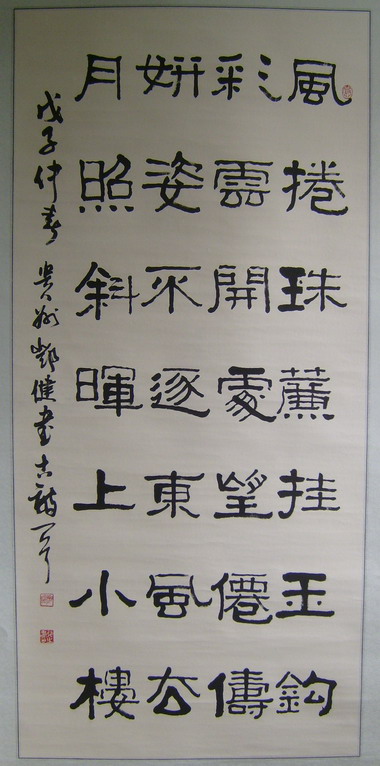 風捲珠簾挂玉鈎
彩雲開處望僊儔
妍姿不逐東風去
月照斜暉上小樓
戊子仲春貴州鄧健書古詩一首